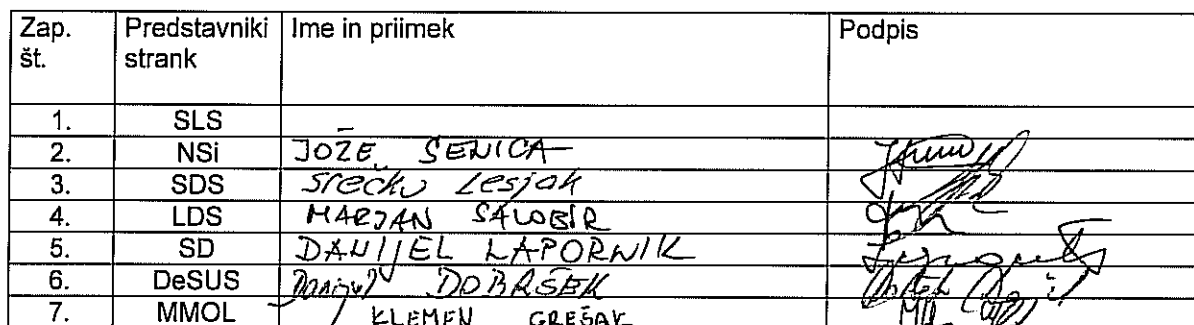 Zap. št. Predstavniki strank Ime in priimek Podpis
1. SLS
2. NSi JOŽE SENICA
3. SDS Srečko Lesjak
4. LDS MARJAN SALOBIR
5. SD DANIJEL LAPORNIK
6. DeSUS Danijel DOBRŠEK
7. MMOL KLEMEN GREŠAK